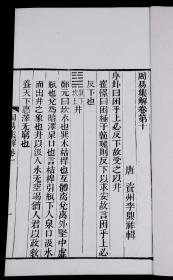 周易集解卷第十
唐 資州李鼎祚輯
序卦曰困乎上必反下故受之以井
崔憬曰困極于臲卼則反下以求安故言困乎上必
反下也
巽下
坎上
鄭元曰坎水也巽木桔槔也互體離兌離外堅中虛
瓶也兌為暗澤泉口也言桔槔引瓶下入泉口汲水
而出井之象也井以汲人水无空竭猶人君以政教
養天下惠澤无窮也
周易集解卷十